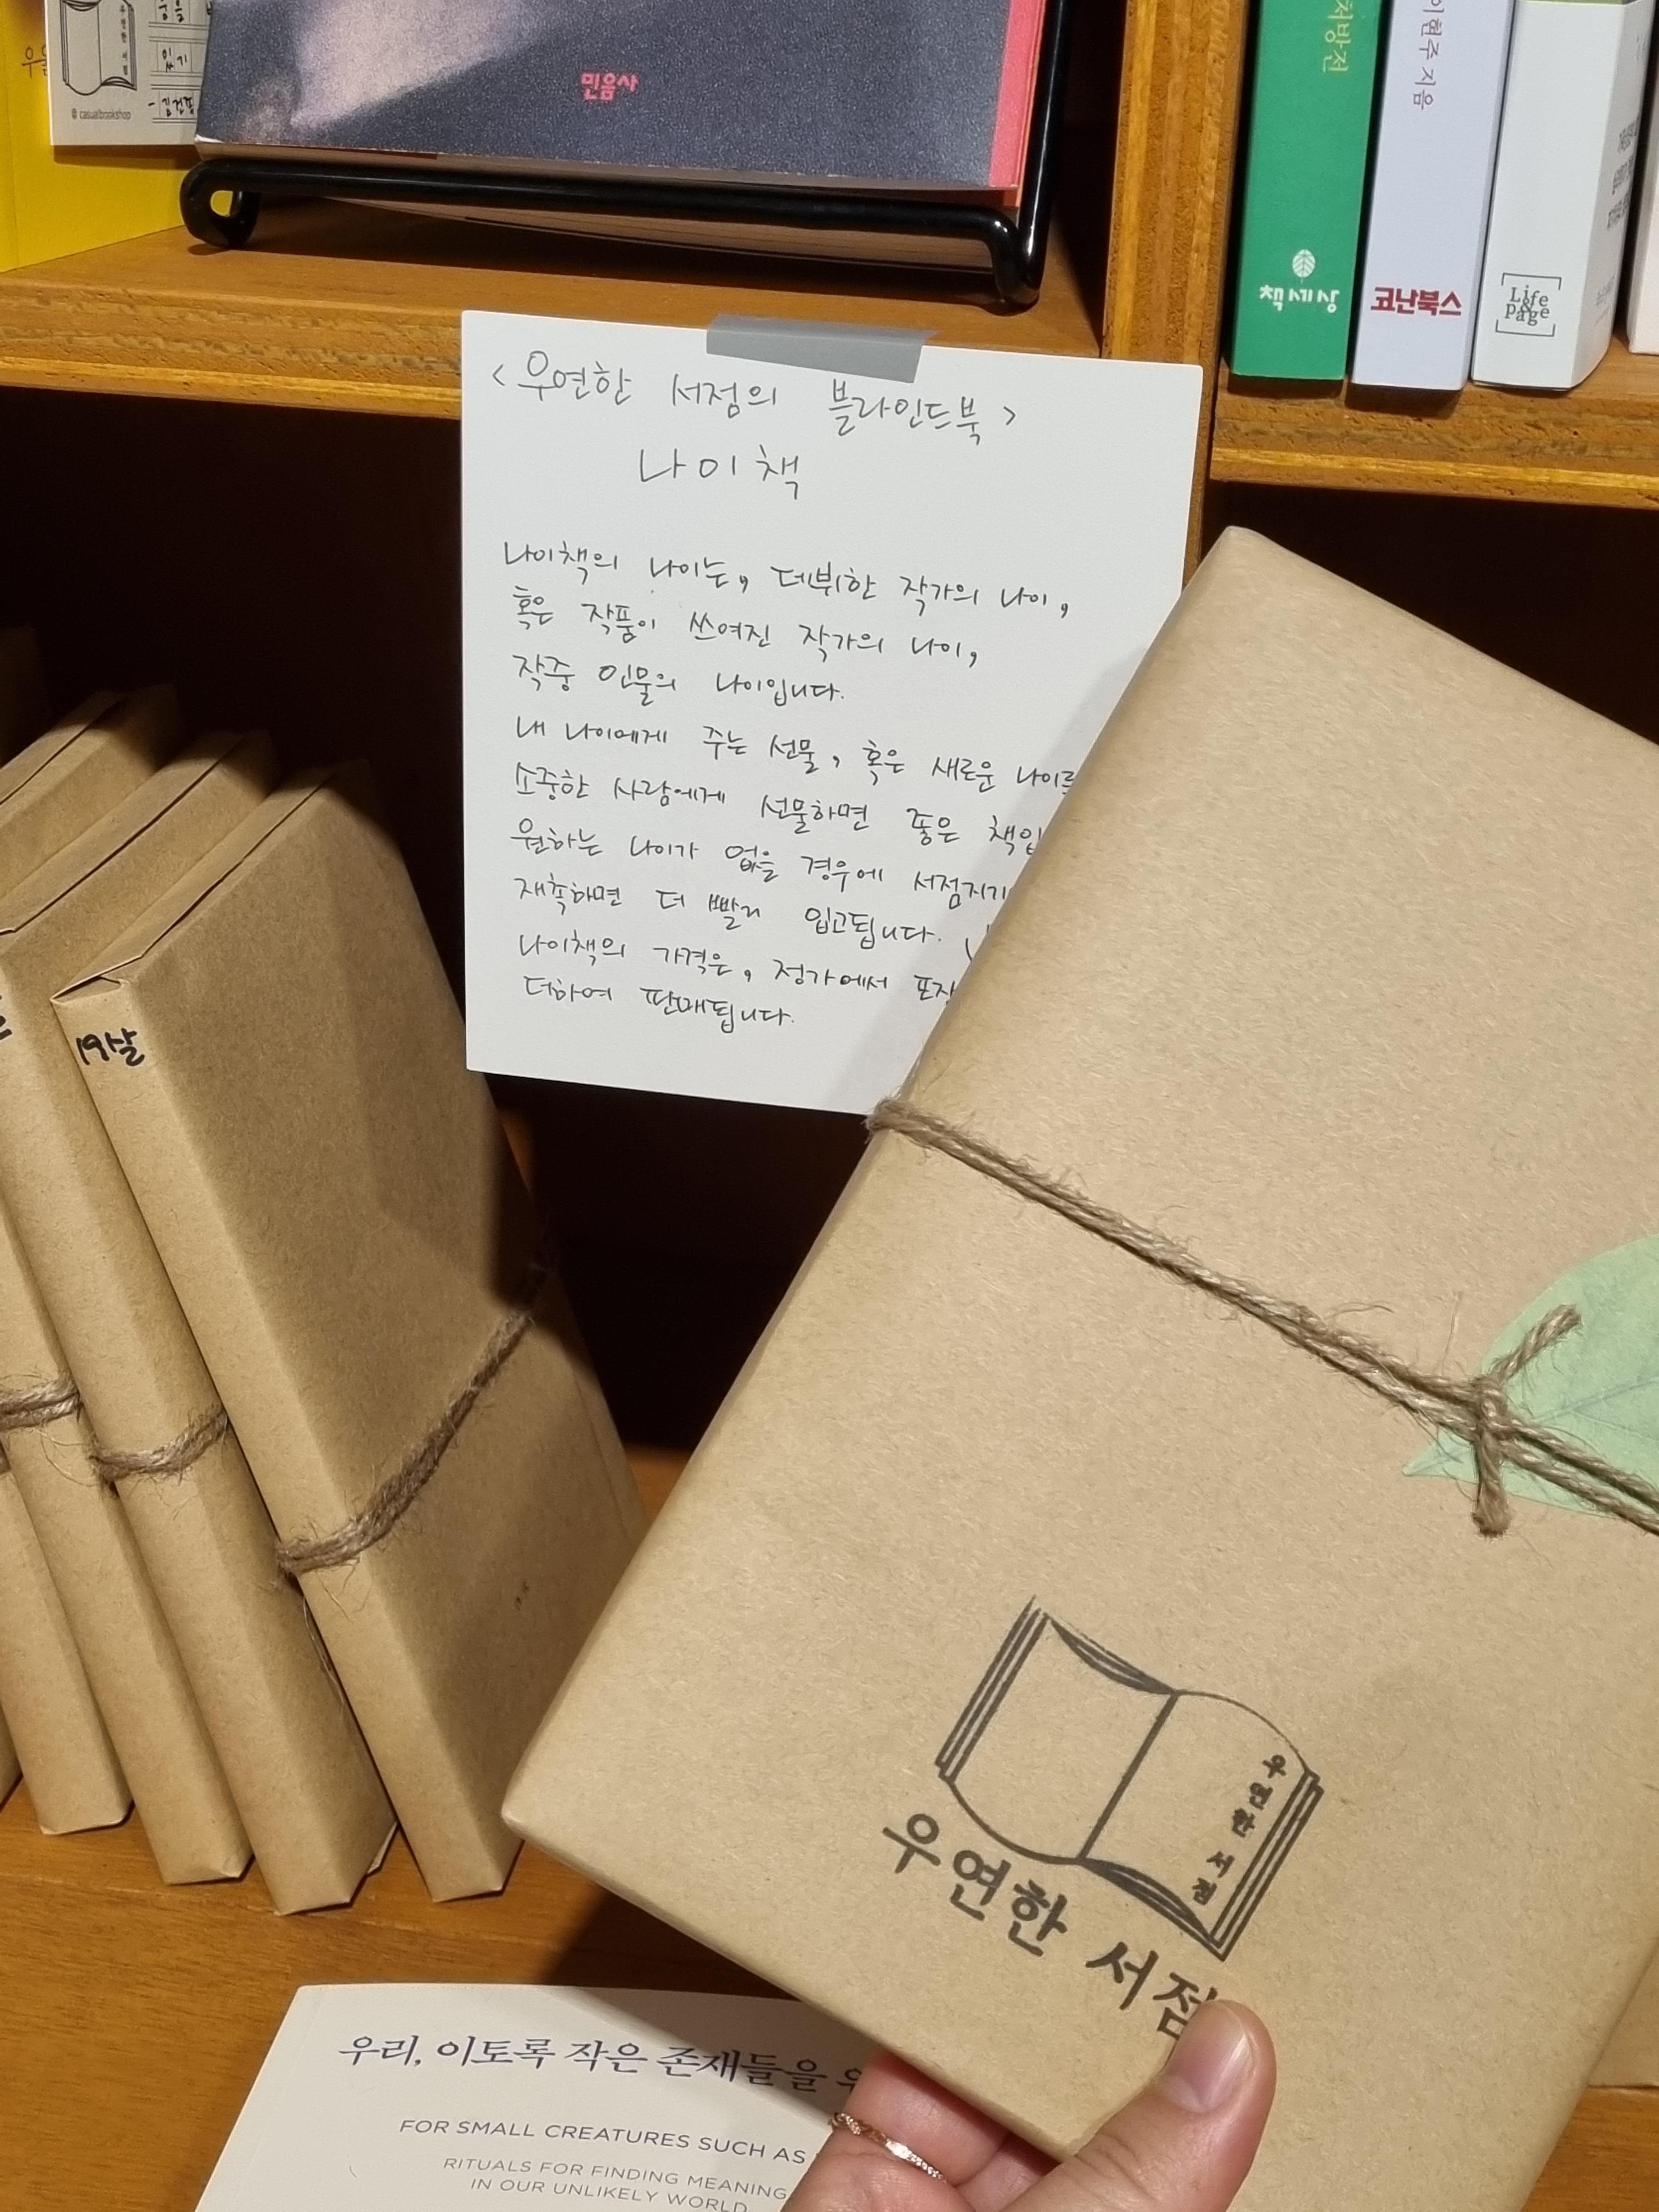 우연한 서점
있기
@casualbookshop
민음사
처방전
이현주 지음
책세상
코난북스
Life & page
<우연한 서점의 블라인드북>
나이책
나이책의 나이는, 데뷔한 작가의 나이,
혹은 작품이 쓰여진 작가의 나이,
작중 인물의 나이입니다.
내 나이에게 주는 선물, 혹은 새로운 나이를
소중한 사람에게 선물하면 좋은 책입
원하는 나이가 없을 경우에 서점지기
재촉하면 더 빨리 입고됩니다.
나이책의 가격은, 정가에서 포장
더하여 판매됩니다.
19살
우연한 서점
우연한 서점
우리, 이토록 작은 존재들을
FOR SMALL CREATURES SUCH AS
RITUALS FOR FINDING MEANING
IN OUR UNLIKELY WORLD